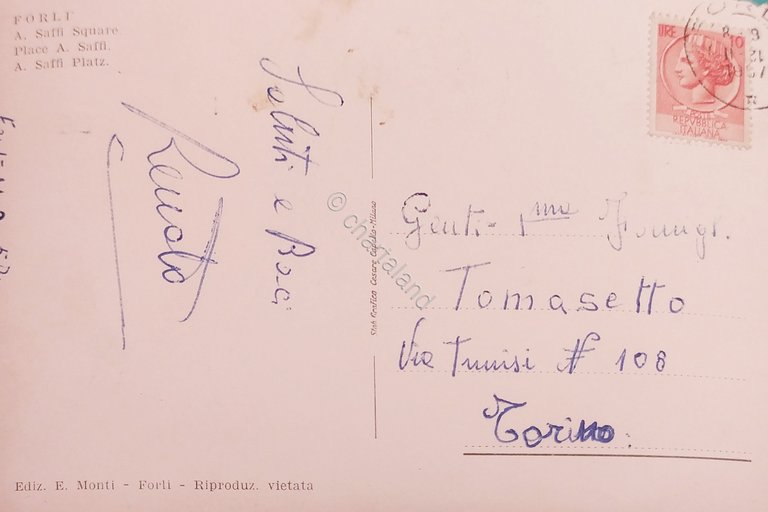 FORLI'
A. Saffi Square.
Place A. Saffi.
A. Saffi Platz.
Saluti e Baci
Renato
LIRE 10
POSTE
REPVBBLICA
ITALIANA
Genti-ma Famigl.
Tomasetto
Via Tunisi N 108
Torino.
Stab. Grafico Cesare Capello-Milano
© chartaland
Ediz. E. Monti - Forlì - Riproduz. vietata